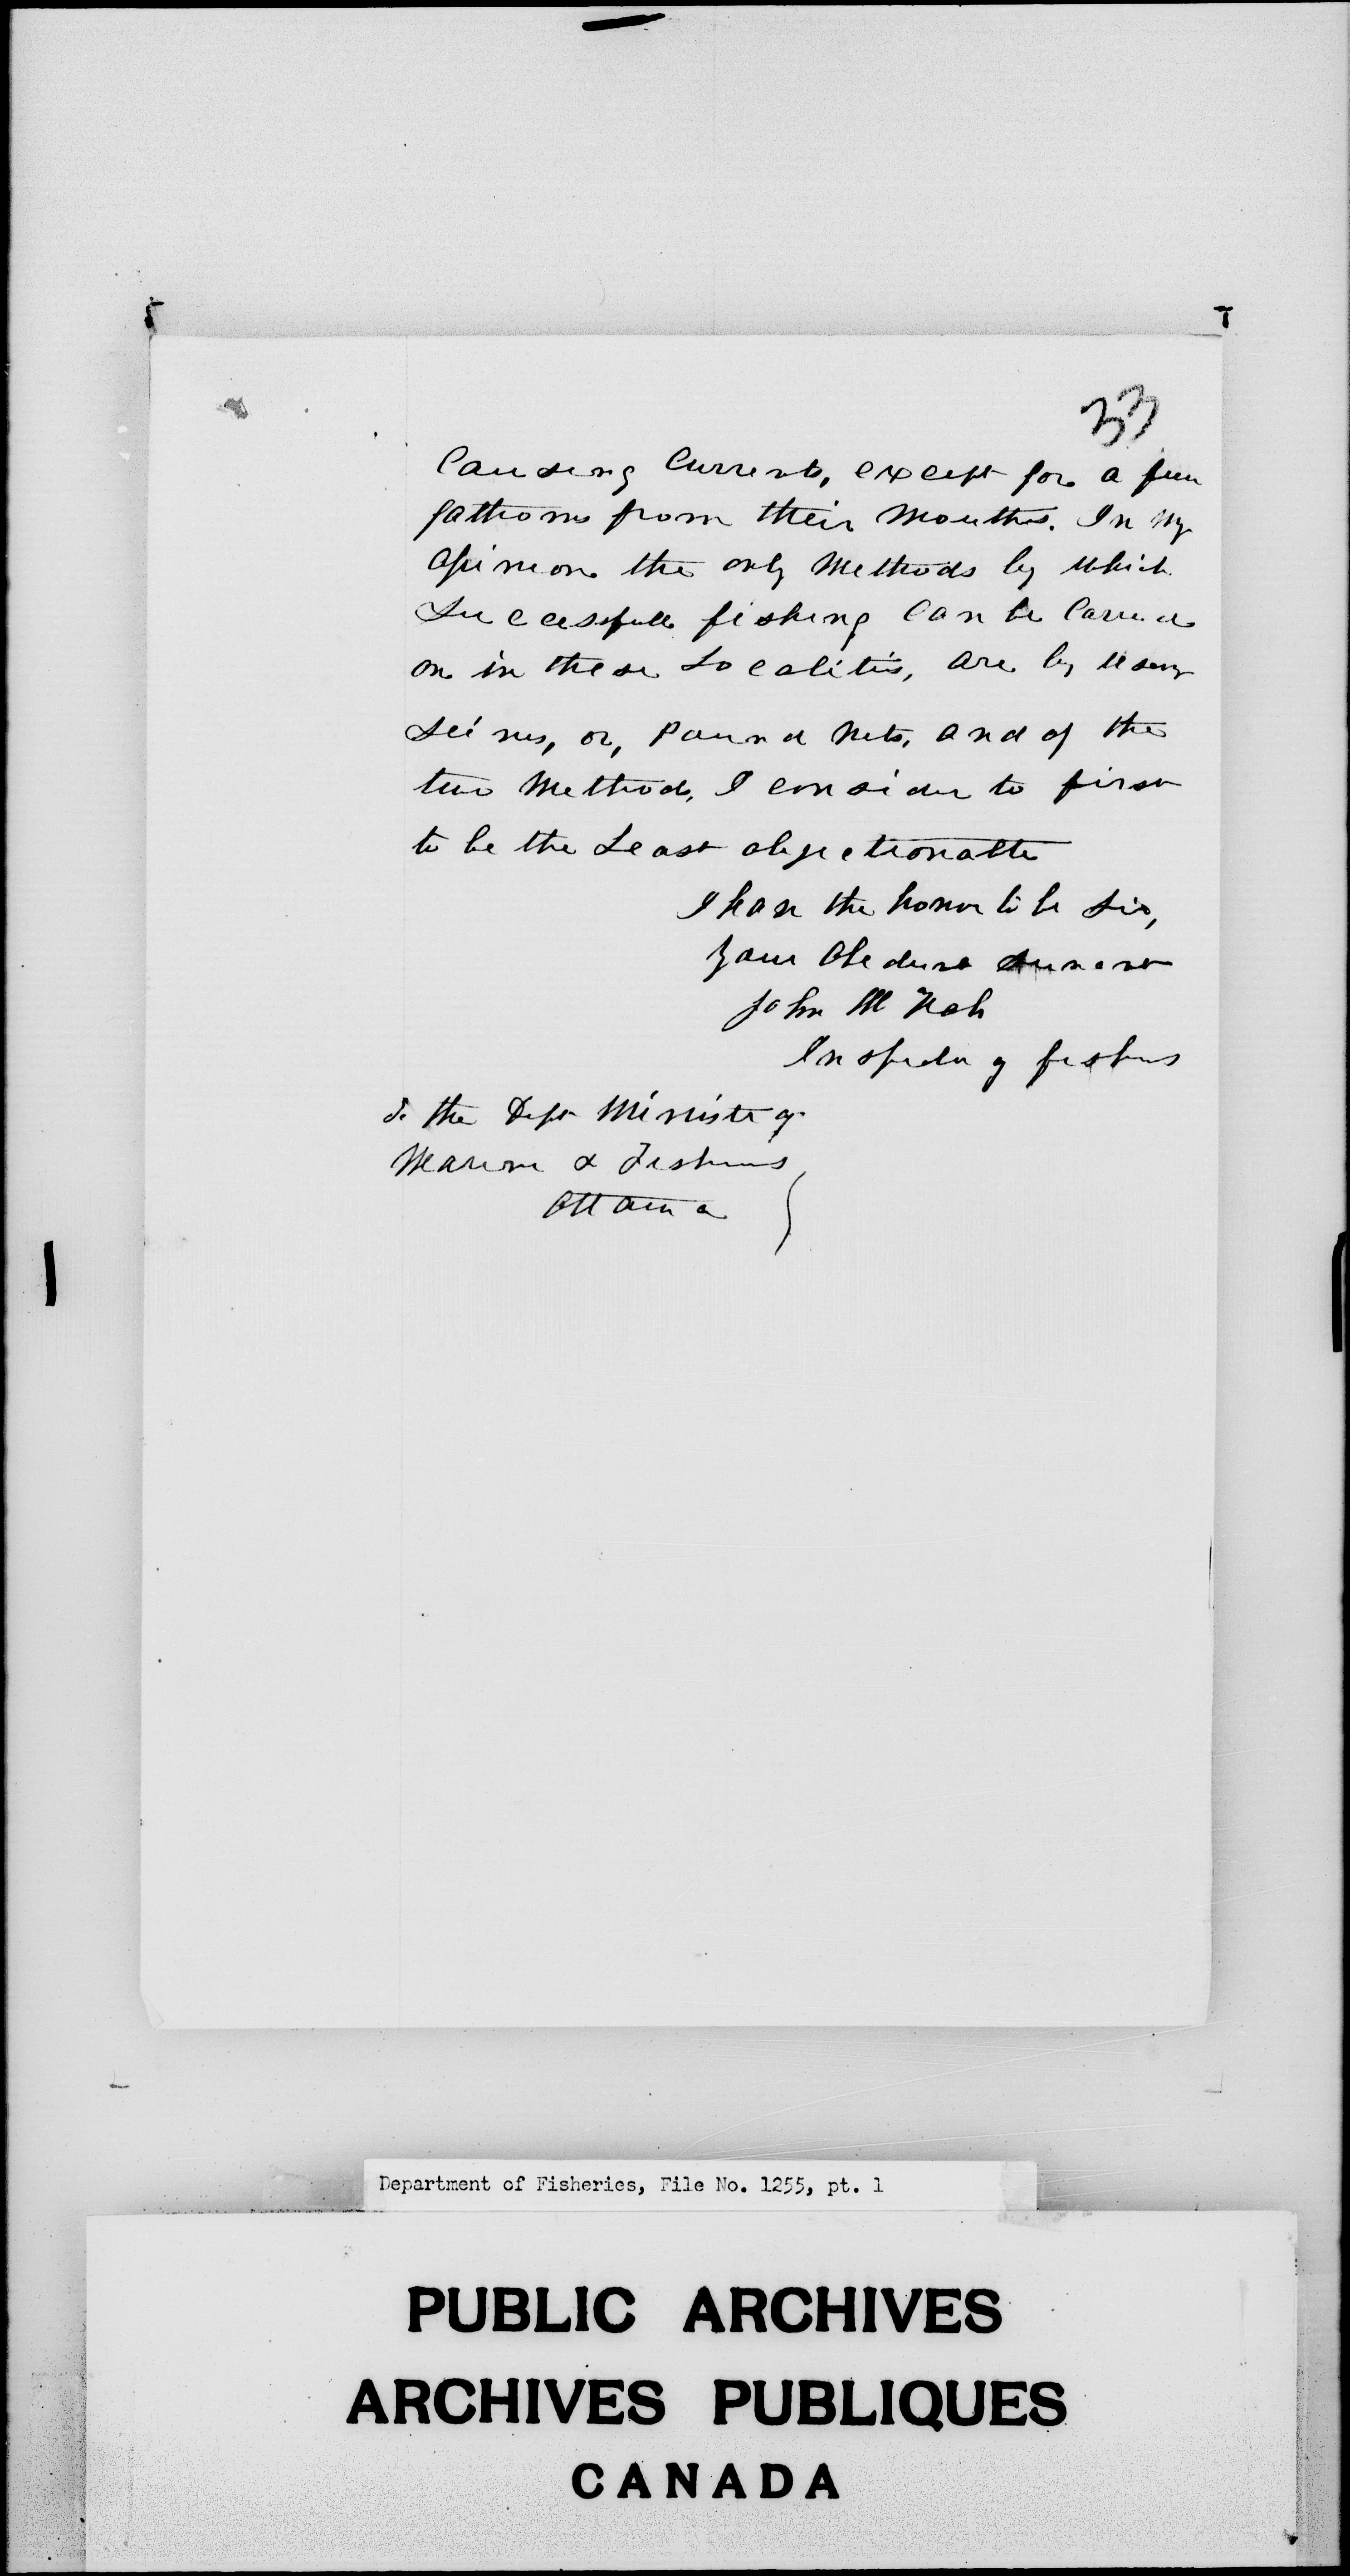 33
Causing Currents, except for a few
fathoms from their Mouths. In My
Opinion the only Methods by which
Successfull fishing Can be Carried
on in these Localitis, are by using
Seines, or, Pound Nets, and of the
two Methods, I consider to first
to be the Least objectionable
I have the honor to be Sir,
Your Obedient Servant
John M
Inspector of fisheries
To the Dept Minister of
Marine & Fisheries
Ottawa
Department of Fisheries, File No. 1255, pt. 1
PUBLIC ARCHIVES
ARCHIVES PUBLIQUES
CANADA